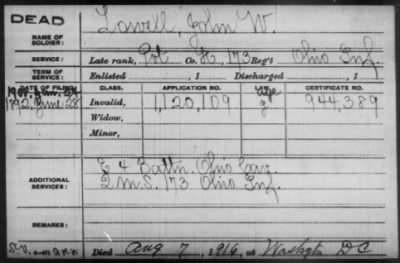 DEAD
NAME OF SOLDIER:
Lowell, John W.
SERVICE:
Late rank, Pvt Co. K, 173 Reg't Ohio Inf.
TERM OF SERVICE:
Enlisted , 1 Discharged , 1
DATE OF FILING. CLASS. APPLICATION NO. LAW. CERTIFICATE NO.
1892 June 28 Invalid, 1,120,109 g 944,389
Widow,
Minor,
ADDITIONAL SERVICES:
E 4 Battn. Ohio Cav.
173 Ohio Inf.
REMARKS:
Died Aug 7, 1916, at Washgtn DC